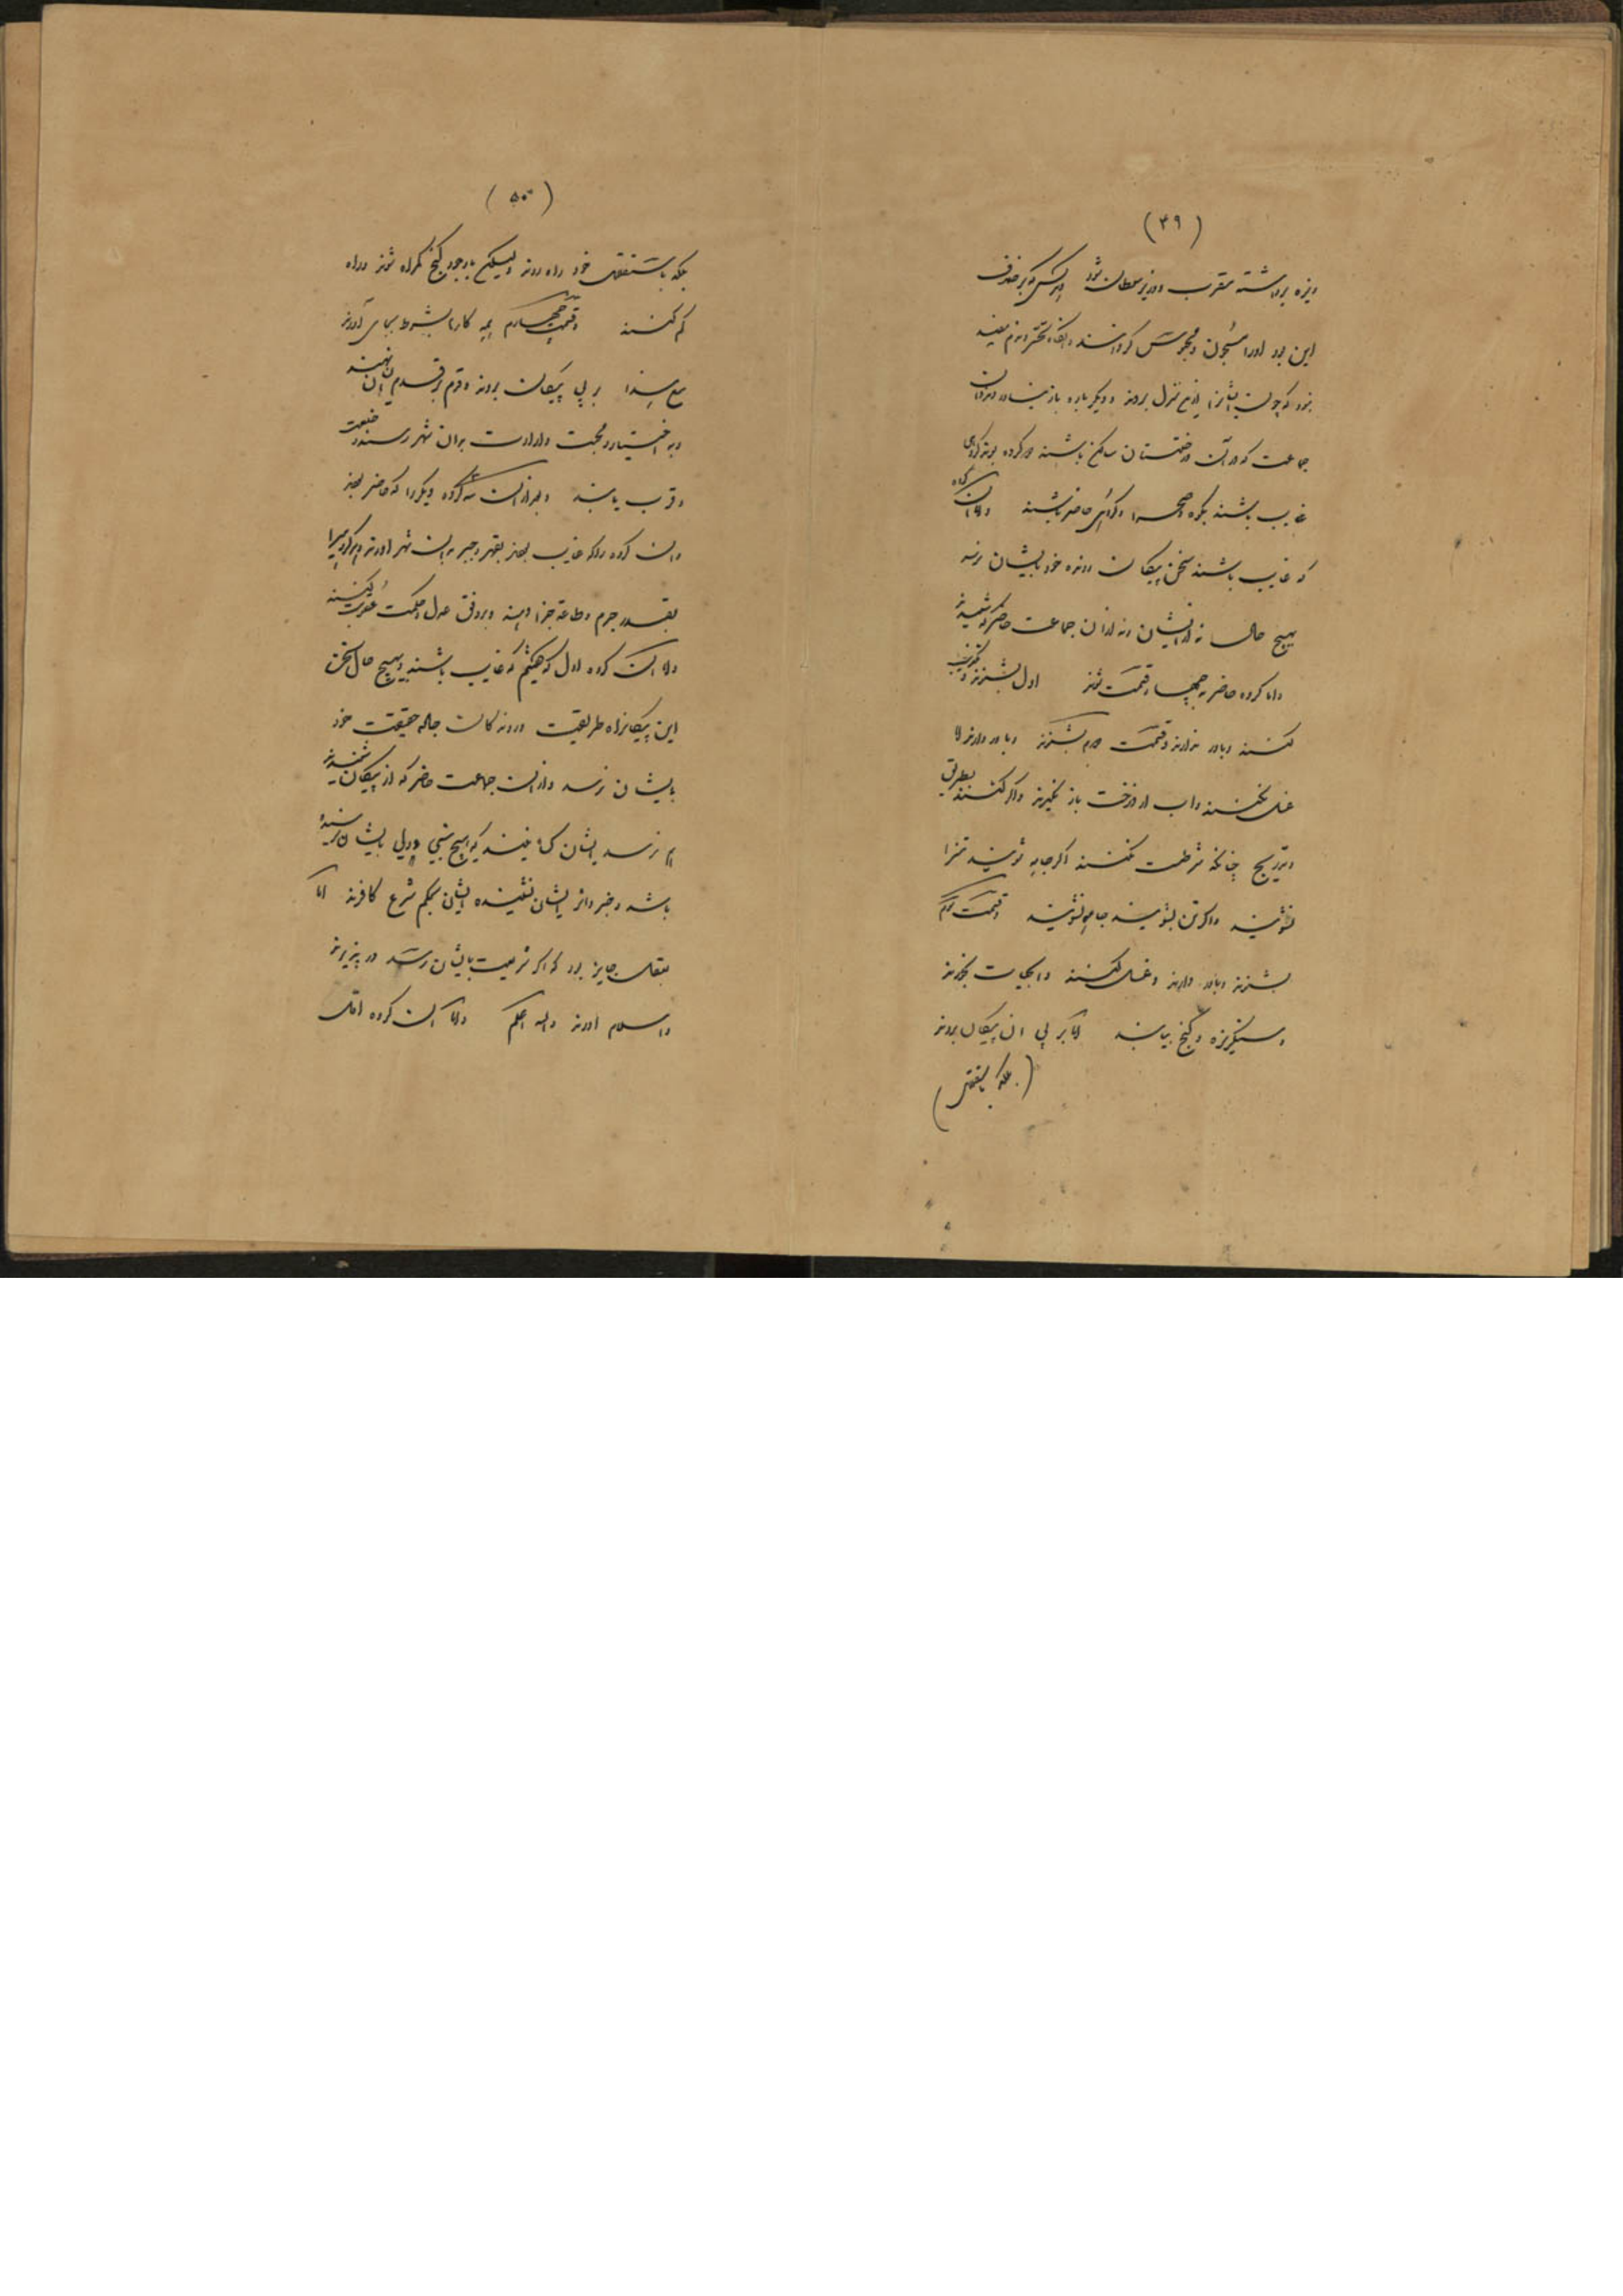 (۴۹)
ویزه برداشته مقرب و وزیر سلطان شود و هر کس که بر خلاف
این بود او را مسجون و محبوس گردانند
بود که چون ایشانرا ازین منزل برند و دیگر باره باز
جماعت که در آن درختستان ساکن باشند دو گروه بوند گروهی
غایب باشند بکوه و صحرا و گروهی حاضر باشند و اما آن گروه
که غایب باشند سخن پیکان رونده خود بایشان نرسد
بهیچ حال نه از ایشان و نه از آن جماعت حاضر که شنیدند
و اما گروه حاضر بر چهار قسمت شوند اول بشنوند و
کنند و باور ندارند و قسمت دوم بشنوند و باور دارند اما
عمل نکنند و آب از درخت باز نگیرند و اگر کنند بطریق
و تدریج چنانکه شرطست نکنند اگر جامه شویند تن را
نشویند و اگر تن بشویند جامه نشویند و قسمت سوم
بشنوند و باور دارند و عمل کنند و آبحیات بخورند
و سنگریزه و گنج بیابند اما بر پی آن پیکان نروند
(بلکه باستقلال)
(۵۰)
بلکه باستقلال خود راه روند و لیکن باوجود گنج گمراه شوند و راه
گم کنند و قسمت چهارم همه کارها بشرط بجای آورند
مع هذا بر پی پیکان بروند و قدم بر قدم ایشان نهند
و به اختیار و محبت و ارادت بدان شهر رسند و خلعت
و قرب یابند و بعد از آن سه گروه دیگر را که حاضر بودند
و آن گروه را که غایب بودند بقهر و جبر بدان شهر آورند و هر گروهی را
بقدر جرم و طاعت جزا دهند و بر وفق عدل و حکمت عقوبت کنند
و اما آن گروه اول که گفتیم که غایب باشند و بهیچ حال سخن
این پیکان راه طریقت و روندگان جاده حقیقت خود
بایشان نرسد و از آن جماعت حاضر که از پیکان شنیدند
هم نرسد ایشان کسانیند که هیچ نبی و ولی بایشان نرسیده
باشد و خبر و اثر ایشان نشنیده ایشان بحکم شرع کافرند اما
بعقل جایز بود که اگر شریعت بایشان رسد در پذیرند
و اسلام آورند والله اعلم و اما آن گروه اول